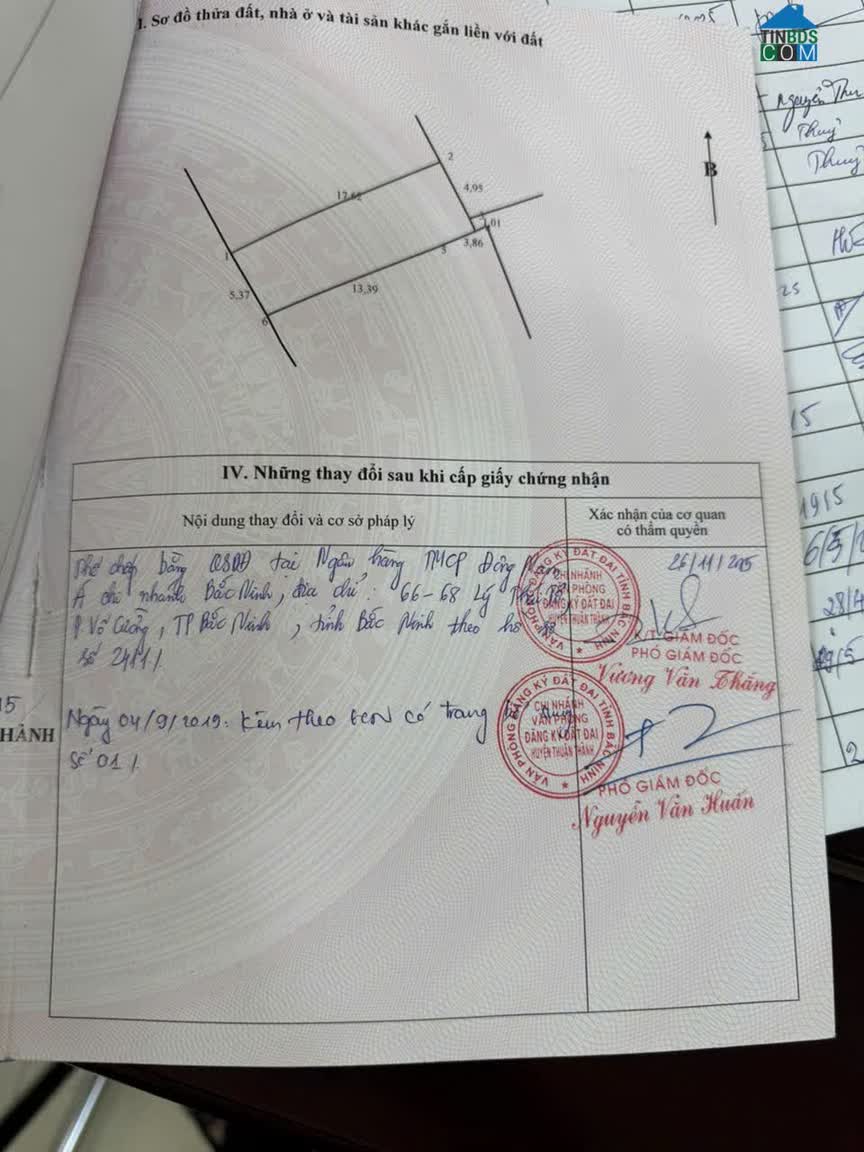 TINBDS
COM
I. Sơ đồ thửa đất, nhà ở và tài sản khác gắn liền với đất
B
2
17,62
4,95
3
1,01
3,86
1
5
5,37
13,39
6
IV. Những thay đổi sau khi cấp giấy chứng nhận
Nội dung thay đổi và cơ sở pháp lý
Xác nhận của cơ quan
có thẩm quyền
Thế chấp bằng QSDĐ tại Ngân hàng TMCP Đông Nam
Á chi nhánh Bắc Ninh, địa chỉ: 66-68 Lý
P Võ Cường, TP Bắc Ninh, tỉnh Bắc Ninh theo hồ sơ
số 2481/.
26/11/2015
VĂN PHÒNG ĐĂNG KÝ ĐẤT ĐAI TỈNH BẮC NINH
CHI NHÁNH
VĂN PHÒNG
ĐĂNG KÝ ĐẤT ĐAI
HUYỆN THUẬN THÀNH
K/T GIÁM ĐỐC
PHÓ GIÁM ĐỐC
Vương Văn Thăng
Ngày 04/9/2019: Kèm theo GCN có trang bổ sung
số 01/.
VĂN PHÒNG ĐĂNG KÝ ĐẤT ĐAI TỈNH BẮC NINH
CHI NHÁNH
VĂN PHÒNG
ĐĂNG KÝ ĐẤT ĐAI
HUYỆN THUẬN THÀNH
PHÓ GIÁM ĐỐC
Nguyễn Văn Huấn
HÀNH
Nguyễn Thu
Thuỷ
Thuỷ
25
15
1915
2